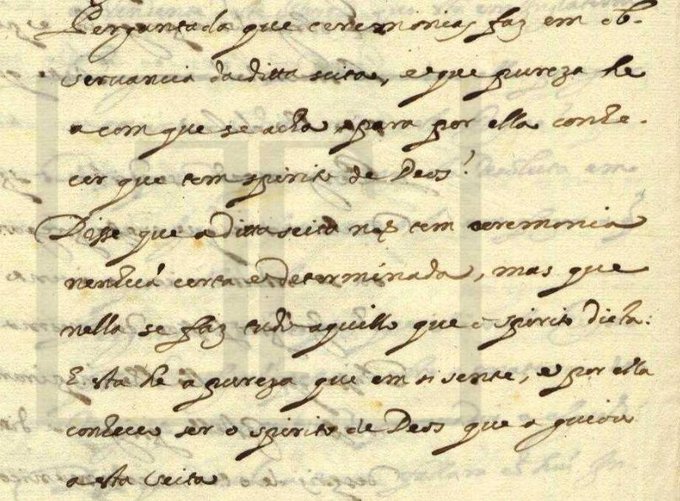 Perguntada que ceremonias faz em ob-
servancia da ditta seita, e que pureza he
a com que se acha para por ella conhe-
cer que tem spirito de Deos?
Disse que a ditta seita não tem ceremonia
nenhuã certa e determinada, mas que
nella se faz tudo aquillo que o spirito dicta:
Esta he a pureza que em si sente, e por ella
conheceo ser o spirito de Deos que a guiou
a esta seita